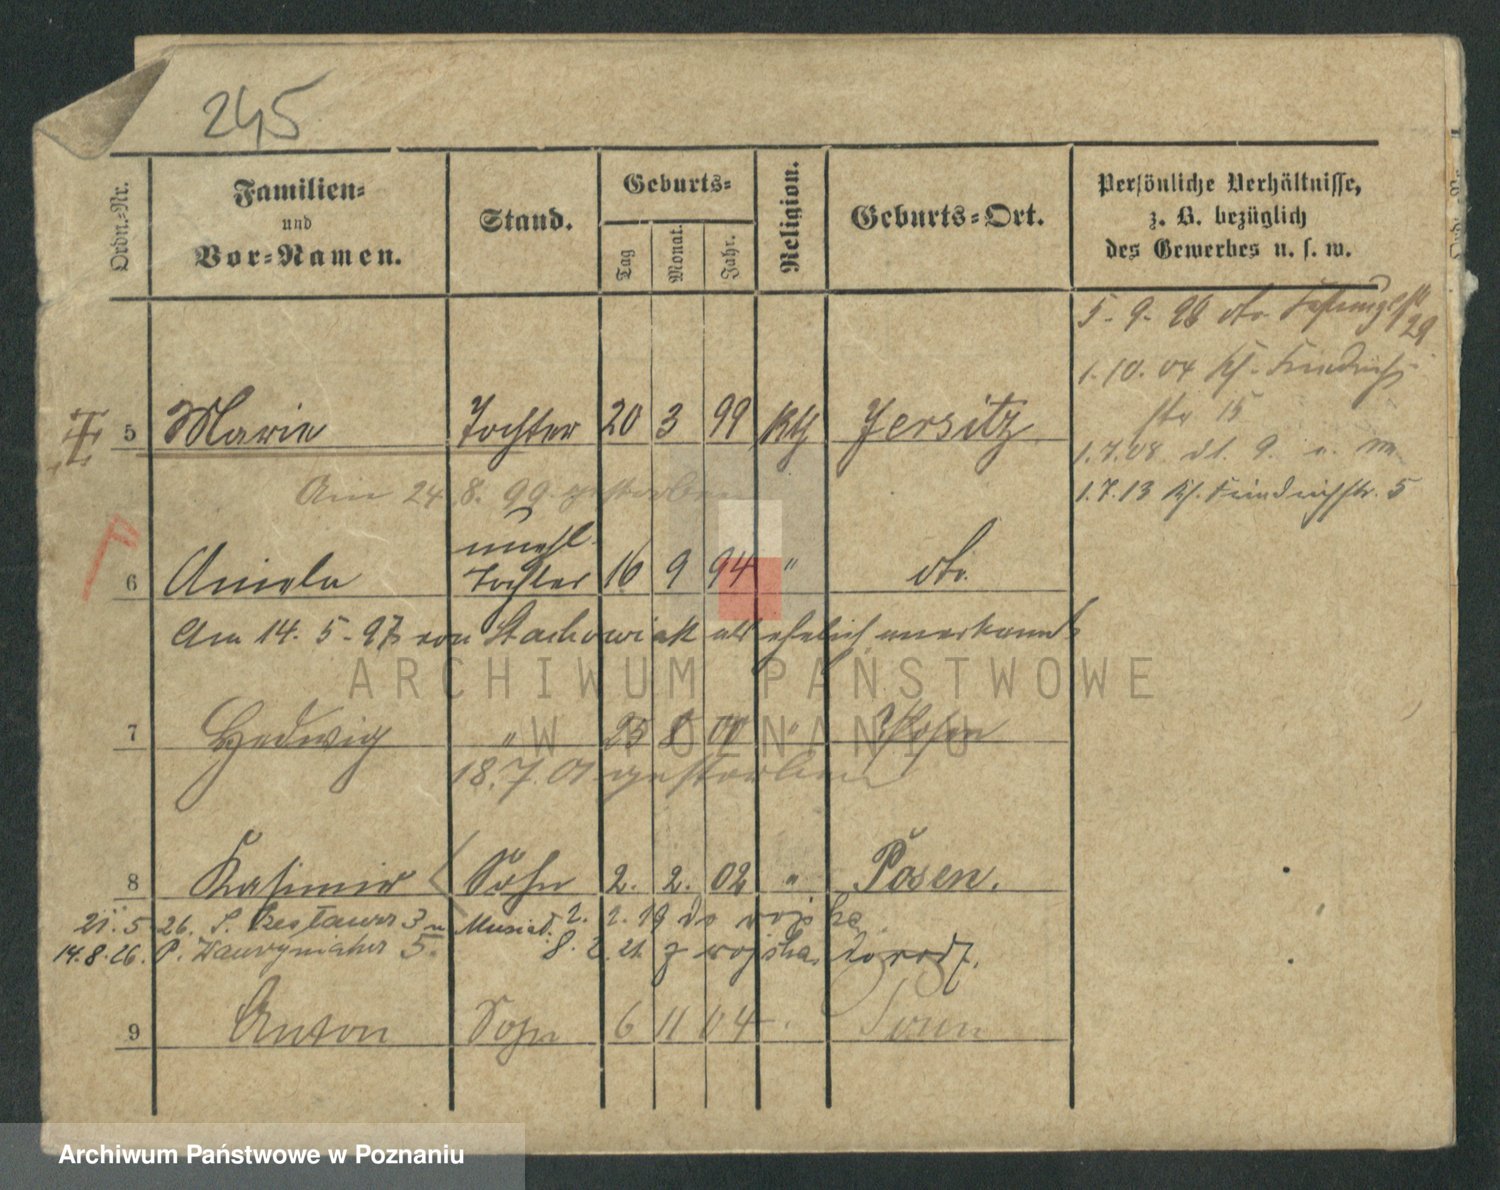 245
Ordn.-Nr.
Familien-
und
Vor-Namen.
Stand.
Geburts-
Tag
Monat.
Jahr.
Religion.
Geburts-Ort.
Persönliche Verhältnisse,
z. B. bezüglich
des Gewerbes u. s. w.
5 Marie Tochter 20 3 99 Kth Jersitz
Am 24. 8. 99. gestorben
6 Aniela unehl. Tochter 16 9 94 " do.
Am 14. 5. 97 von Stachowiak als ehelich anerkannt
7 Hedwig " 8 "  Posen
18. 7. 01 gestorben
8 Kasimir Sohn 2. 2. 02 " Posen.
21. 5 26. 3
2. 2. 19 do wojska
14. 8. 26. P. 5.
8. 2. 21. z wojska
9 Anton Sohn 6 11 04
5. 9. 96 do. 29
1. 10. 04 Friedrich
str 15
1. 7. 08
1. 7. 13 Friedrichstr. 5
ARCHIWUM PAŃSTWOWE
W POZNANIU
Archiwum Państwowe w Poznaniu